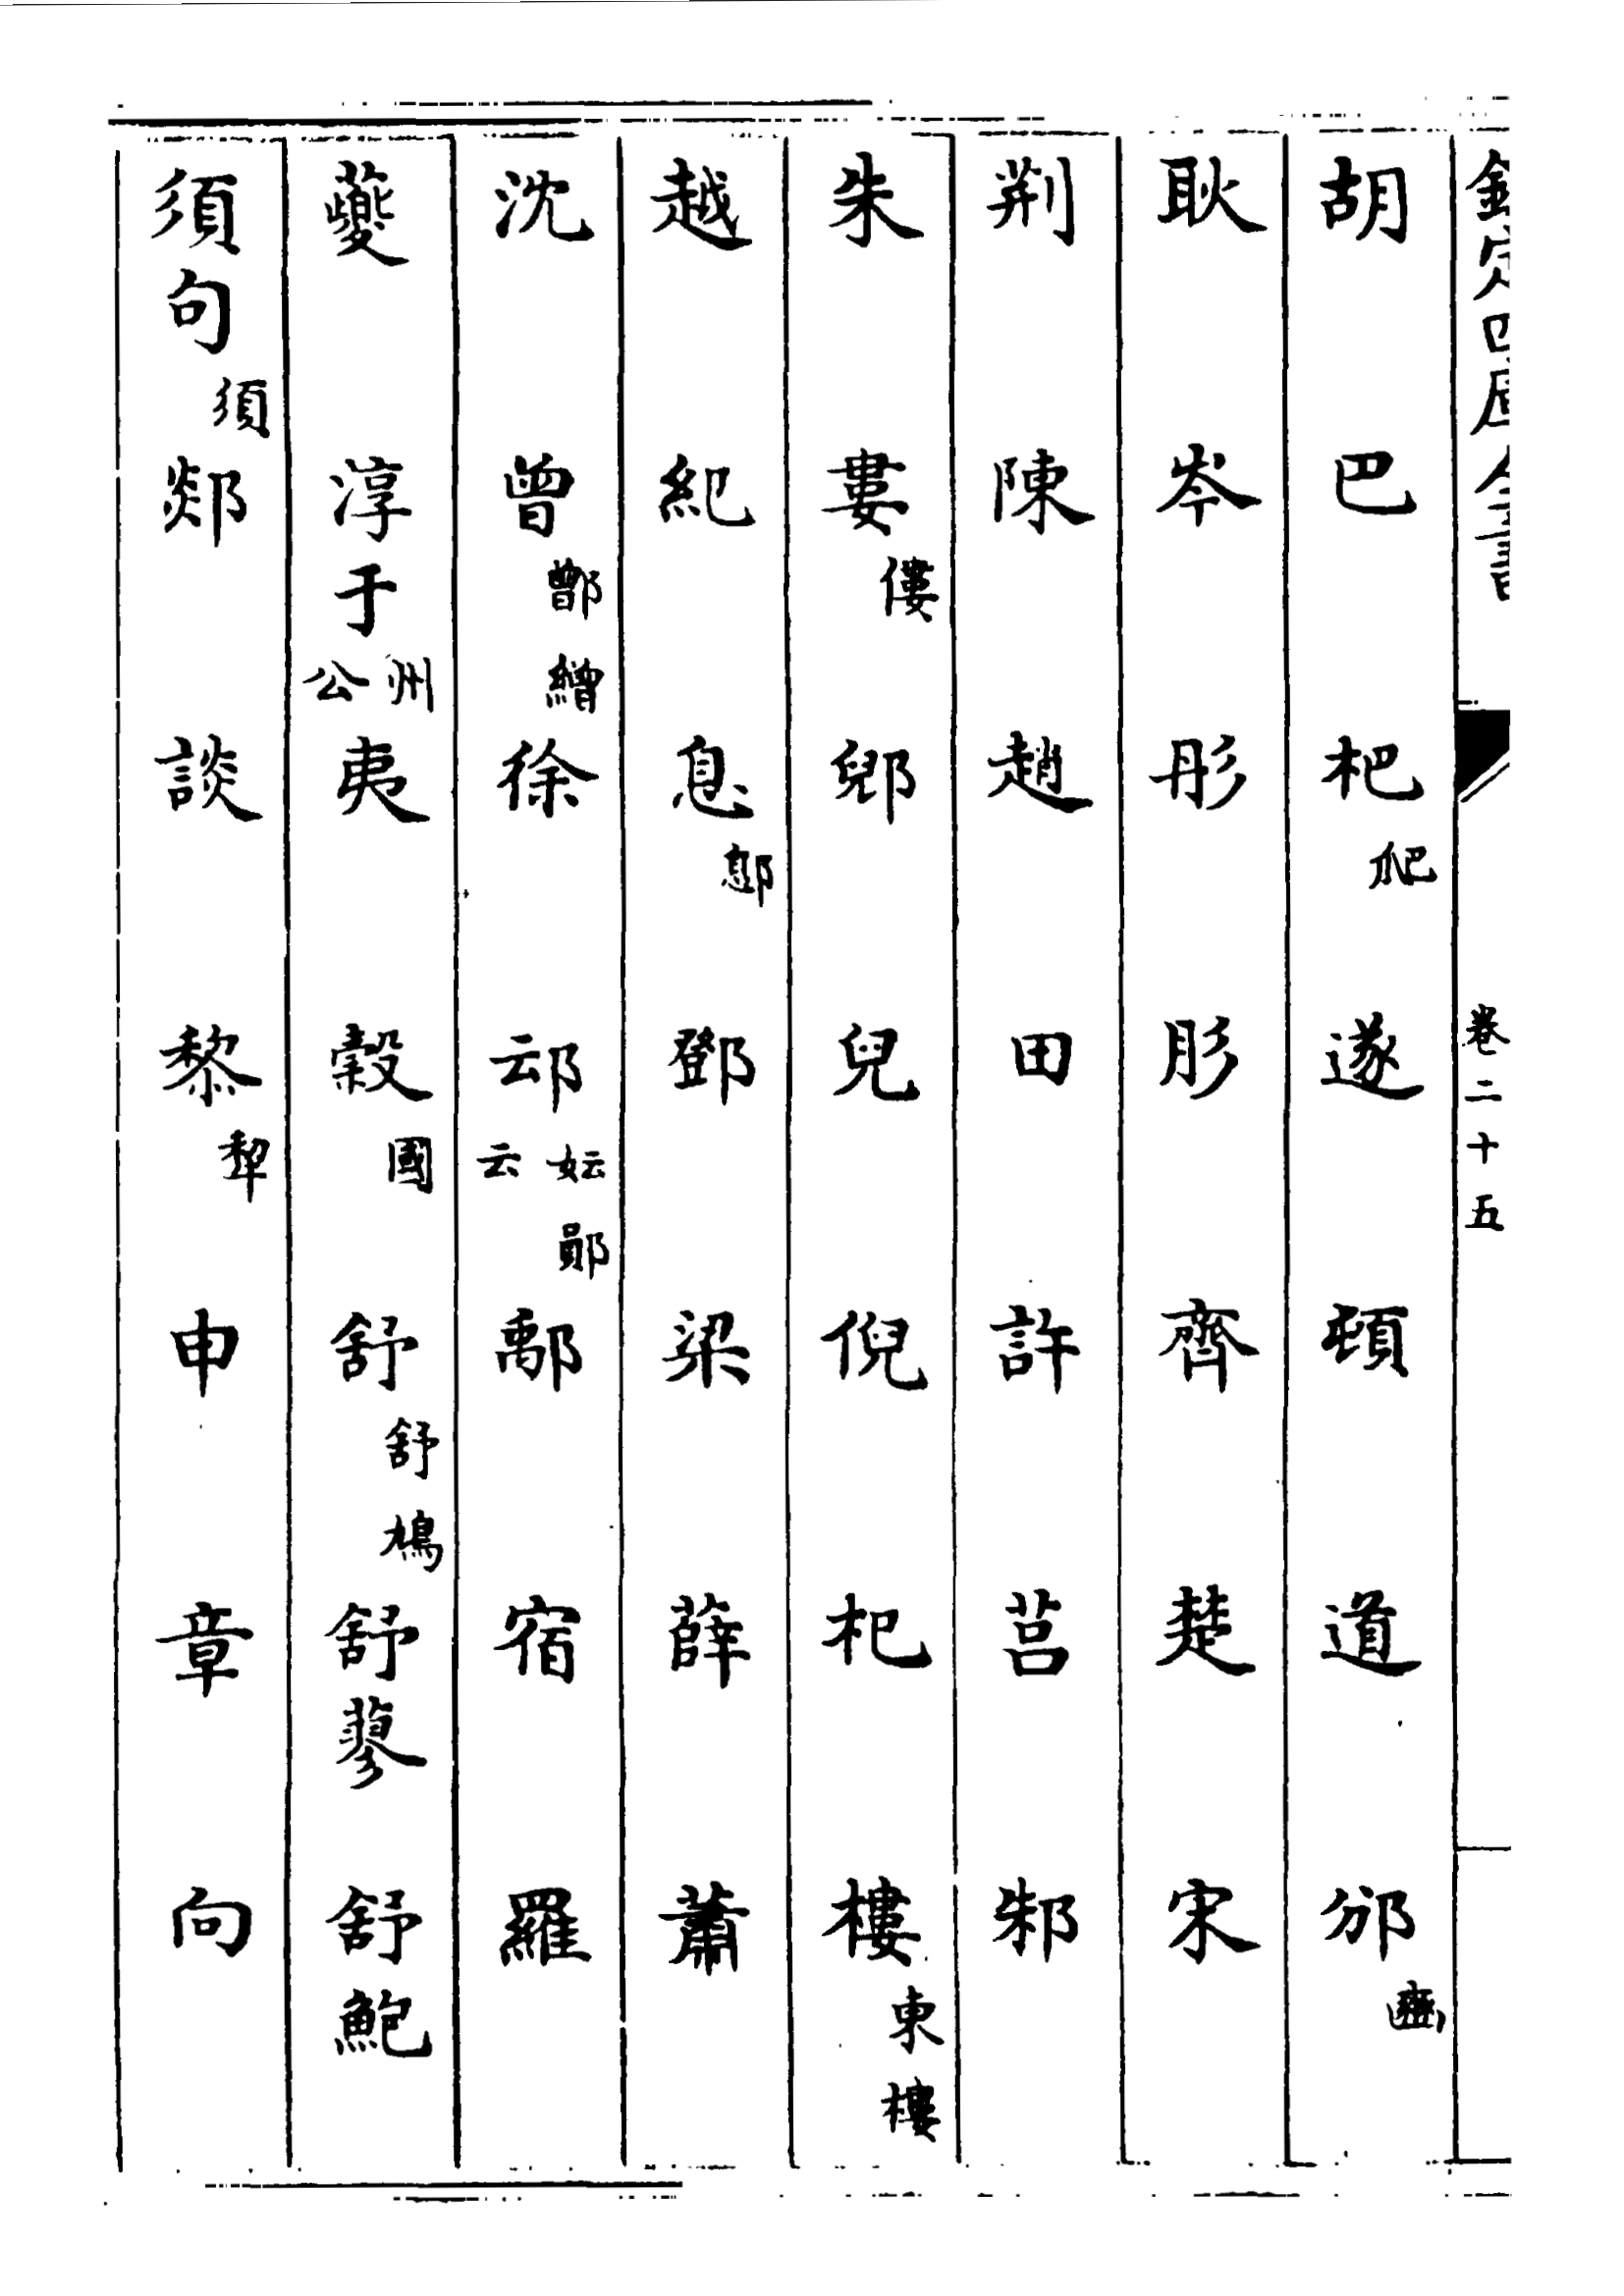 欽定四庫全書
卷二十五
胡 巴 杷 爬 遂 頓 道 邠
耿 岑 彤 肜 齊 楚 宋
荆 陳 趙 田 許 莒 邾
朱 婁 僂 郳 兒 倪 杞 樓 東樓
越 紀 息 鄎 鄧 梁 薛 蕭
沈 曾 鄫 繒 徐 䢵 妘 鄖 云 鄅 宿 羅
蘷 淳于 州公 夷 穀 國 舒 舒鳩 舒蓼 舒鮑
須句 須 郯 談 黎 犂 申 章 向